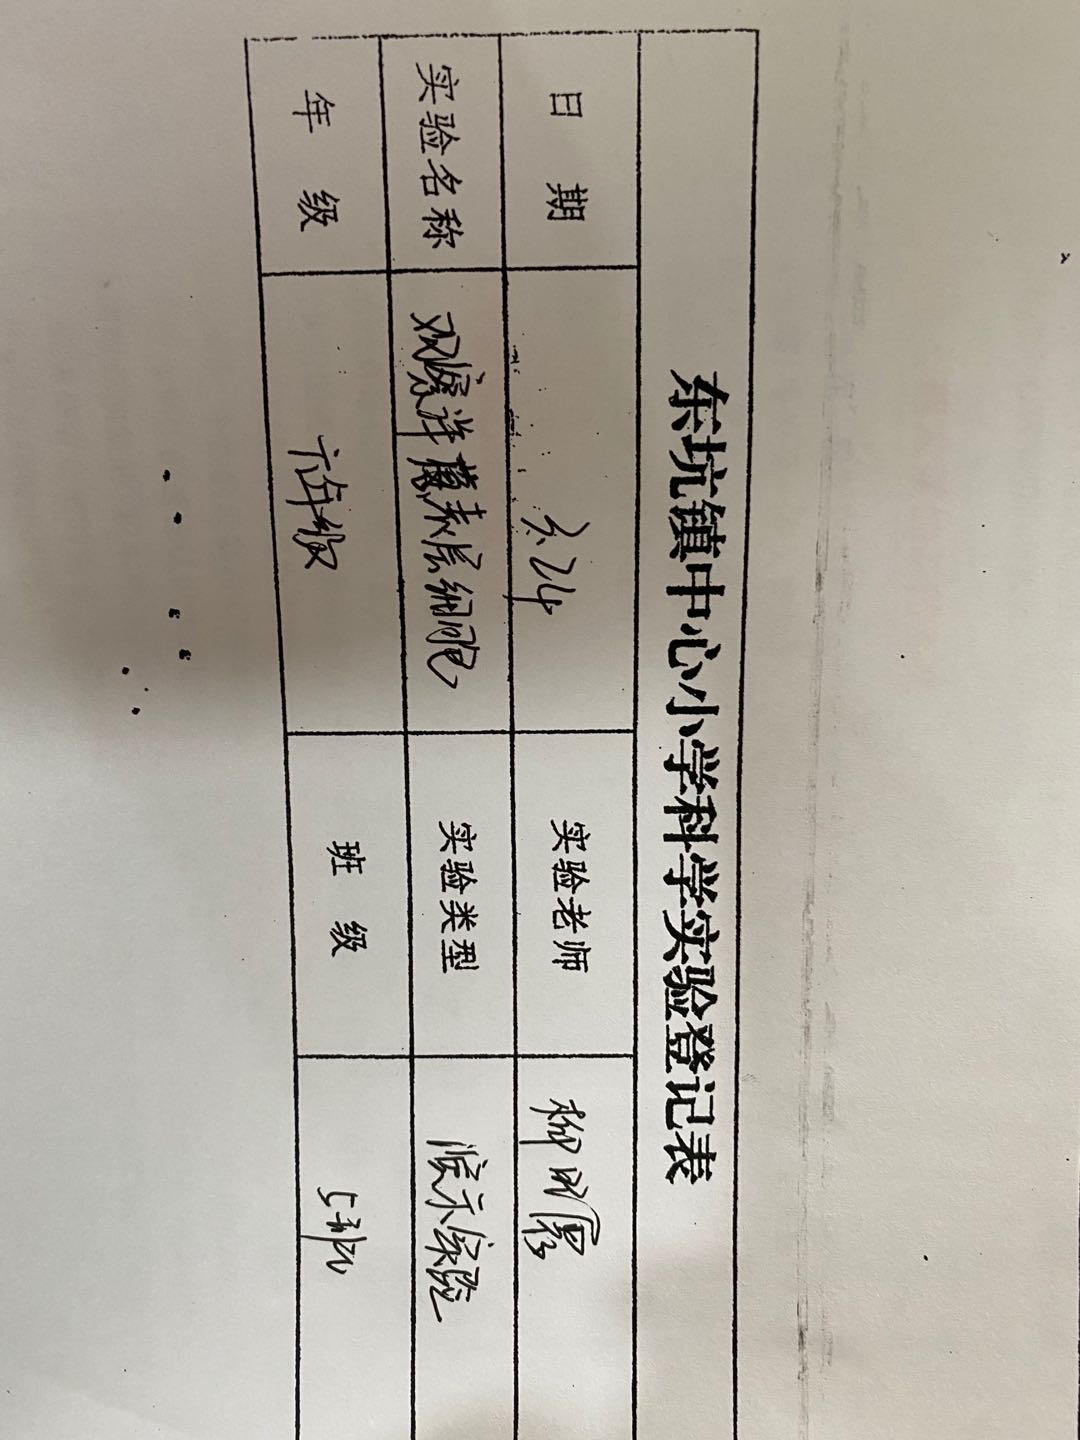 东坑镇中心小学科学实验登记表
日期 3.24 实验老师 柳
实验名称 观察洋葱表层细胞 实验类型 演示实验
年级 六年级 班级 5班